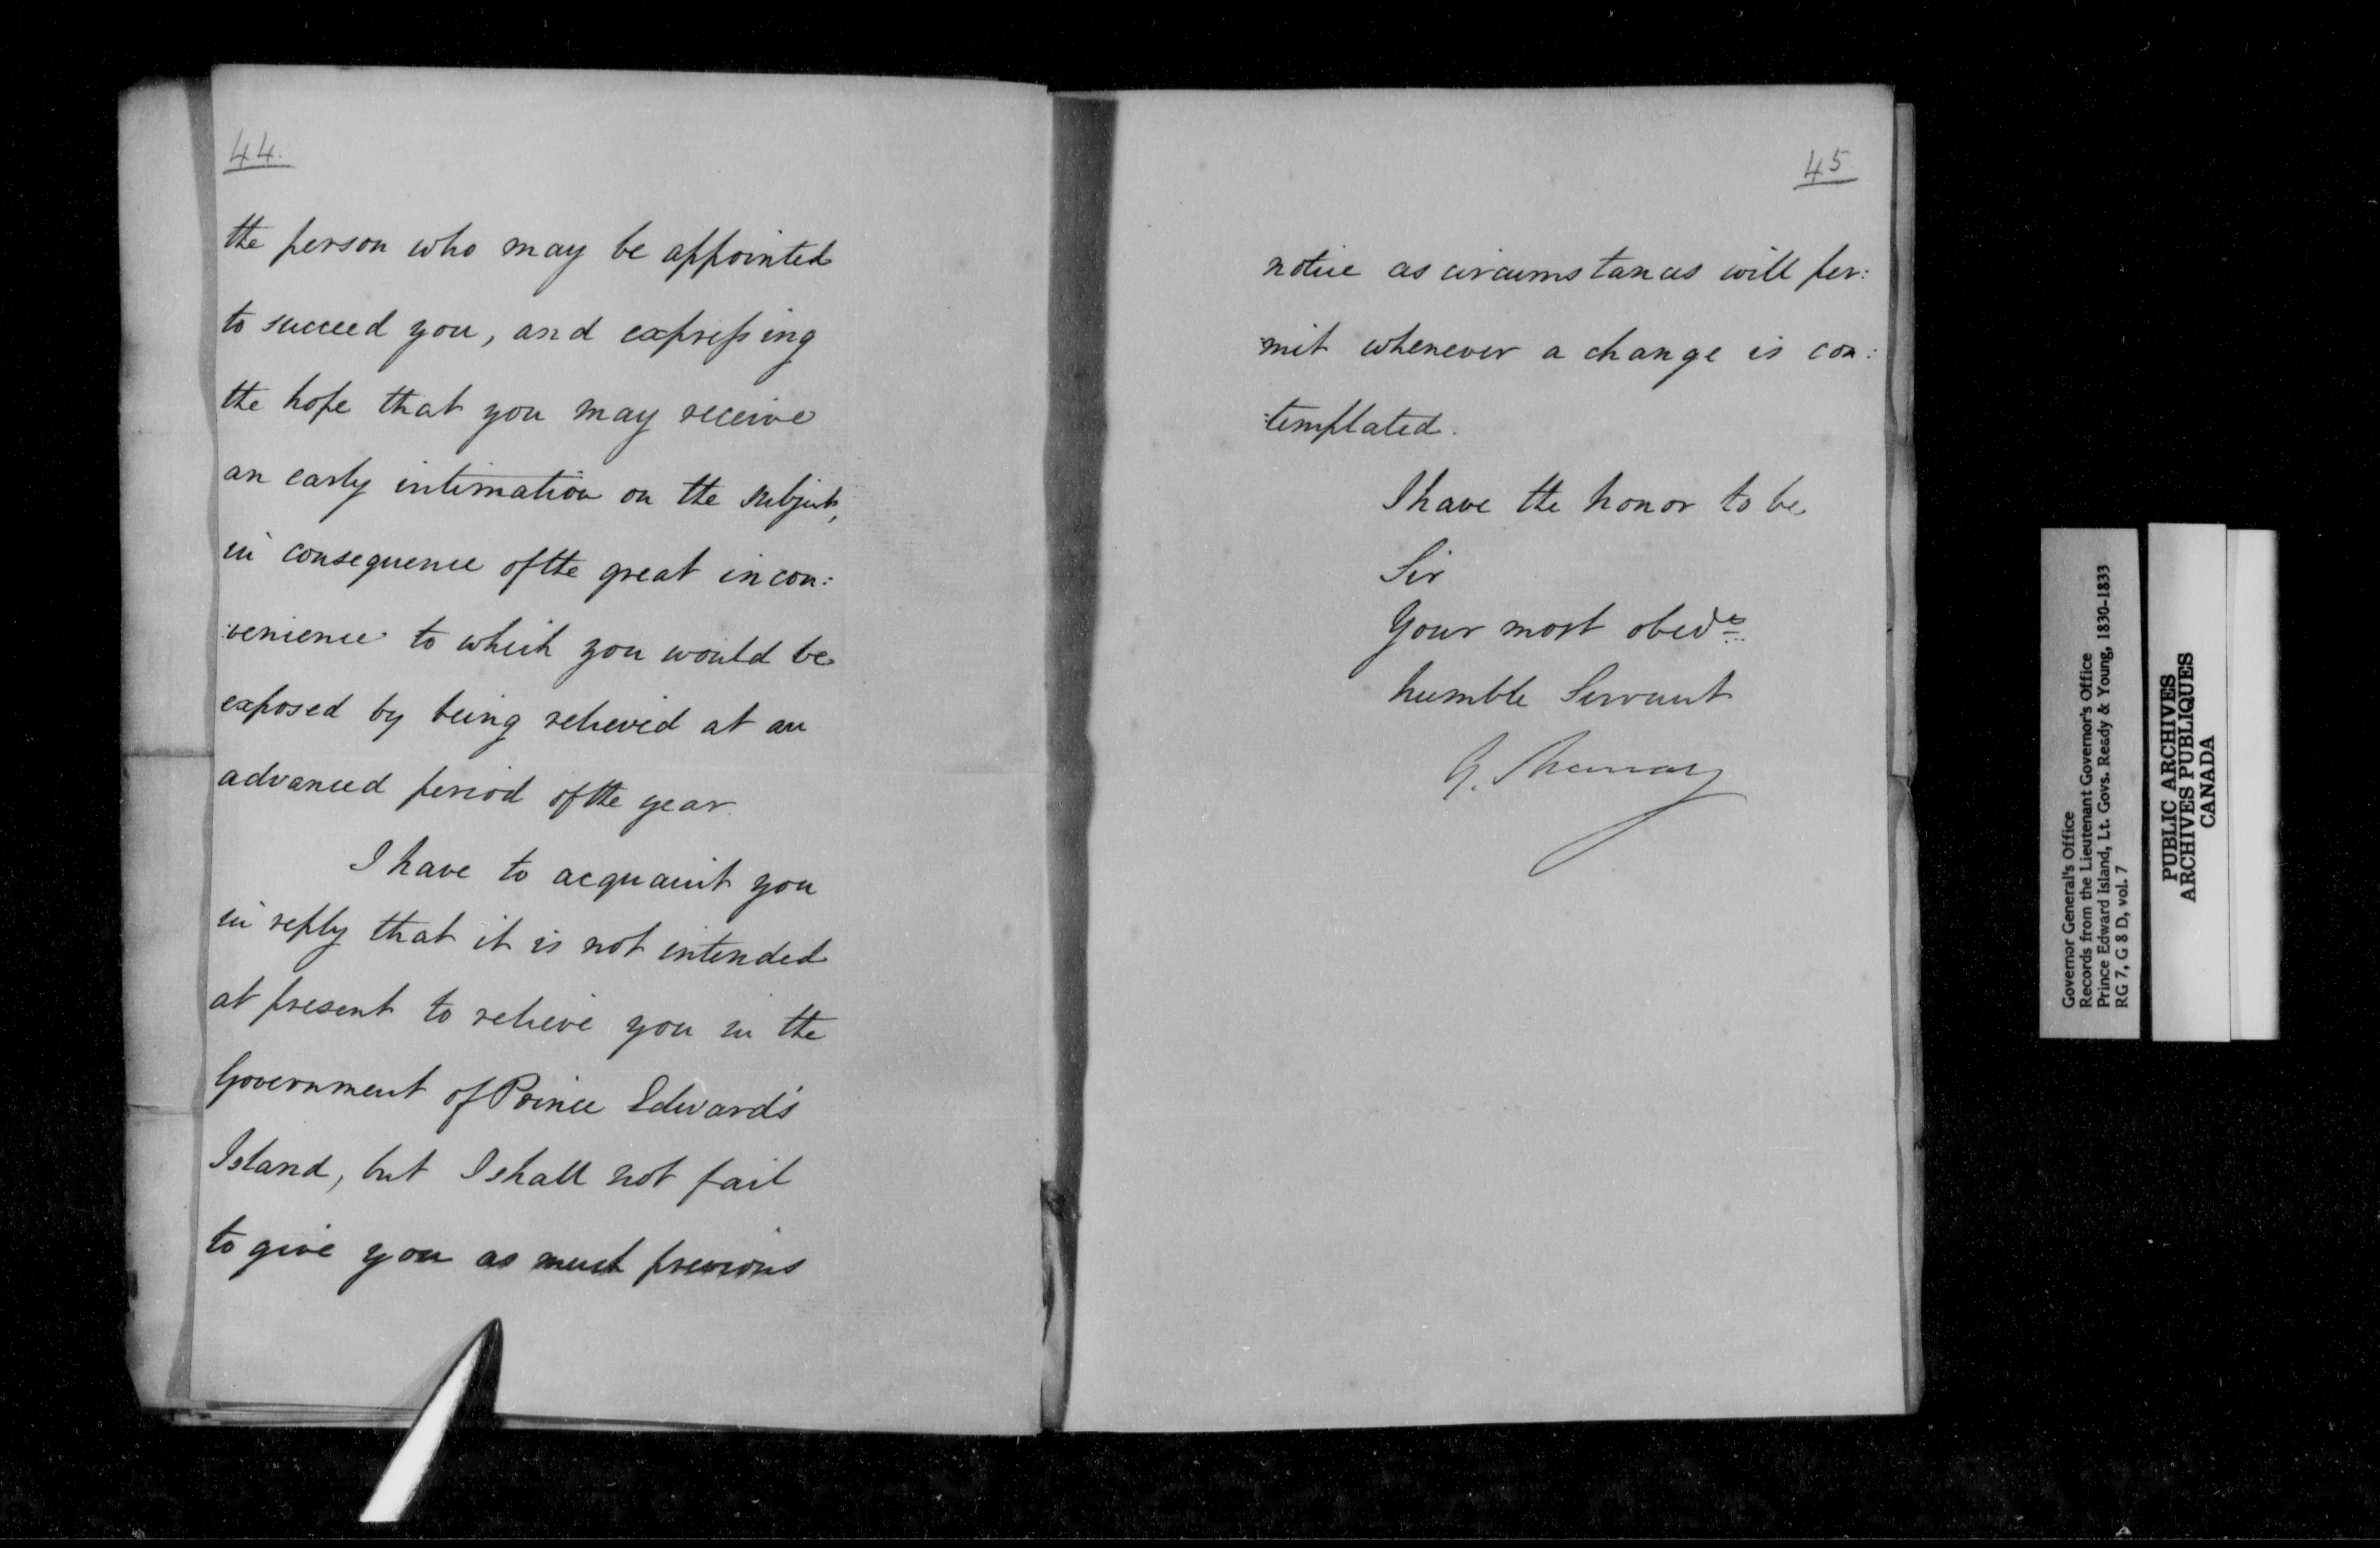 44.
the person who may be appointed
to succeed you, and expressing
the hope that you may receive
an early intimation on the subject,
in consequence of the great incon:
:venience to which you would be
exposed by being relieved at an
advanced period of the year.
I have to acquaint you
in reply that it is not intended
at present to relieve you in the
Government of Prince Edward's
Island, but I shall not fail
to give you as much previous
45
notice as circumstances will per:
:mit whenever a change is con:
:templated.
I have the honor to be
Sir
Your most obedt
humble Servant
G. Murray
Governor General's Office
Records from the Lieutenant Governor's Office
Prince Edward Island, Lt. Govs. Ready & Young, 1830-1833
RG 7, G 8 D, vol. 7
PUBLIC ARCHIVES
ARCHIVES PUBLIQUES
CANADA